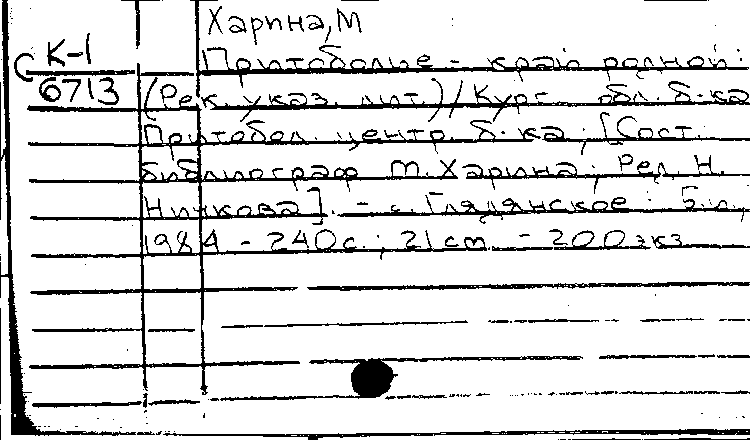 Харина, М
К-1
6713
Притоболье - край родной:
(Рек. указ. лит.) / Кург. обл. б-ка
Притобол. центр. б-ка; [Сост.
библиограф М. Харина; Ред. Н.
Ничкова]. - с. Глядянское: Б.и.,
1984 - 240с.; 21 cm. - 200 экз